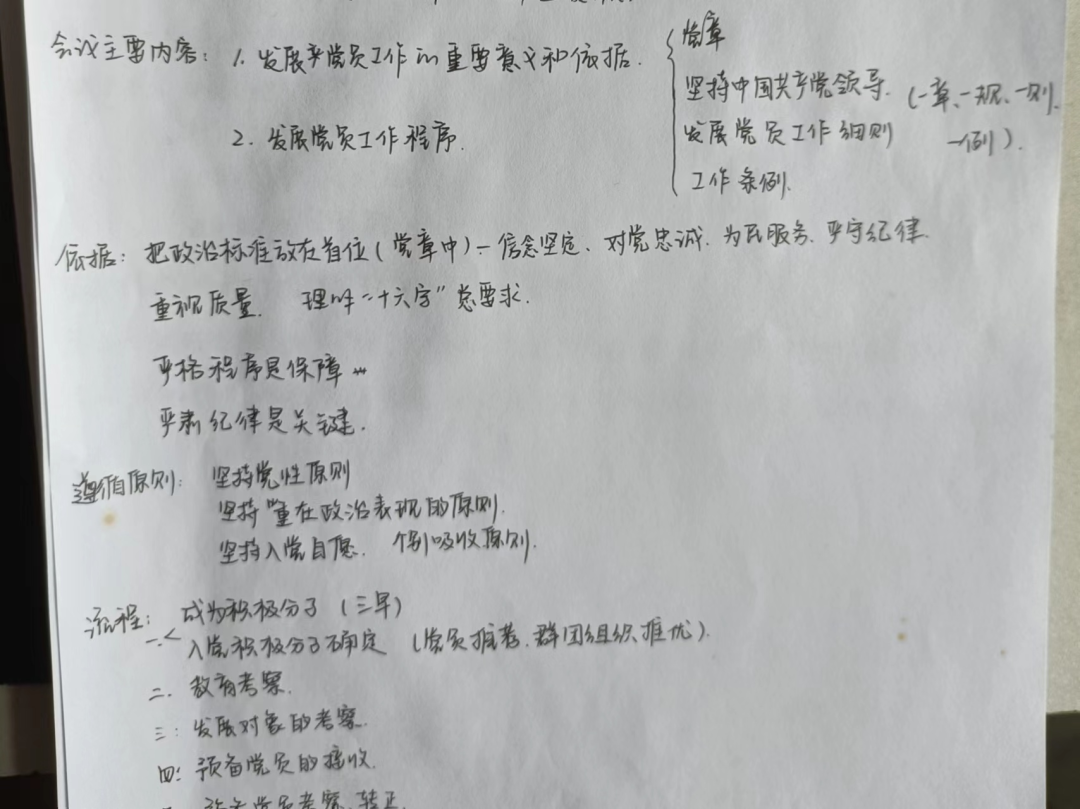 会议主要内容: 1. 发展党员工作的重要意义和依据.
党章
坚持中国共产党领导. (一章、一规、一则、
发展党员工作细则 一例).
工作条例.
2. 发展党员工作程序.
依据: 把政治标准放在首位(党章中)-信念坚定、对党忠诚. 为民服务、严守纪律.
重视质量. 理解“十六字”总要求.
严格程序是保障
严肃纪律是关键.
遵循原则: 坚持党性原则
坚持重在政治表现的原则.
坚持入党自愿. 个别吸收原则.
流程: 成为积极分子 (三早)
一.< 入党积极分子确定 (党员推荐. 群团组织推优).
二. 教育考察.
三: 发展对象的考察.
四: 预备党员的接收.
预备党员考察、转正.